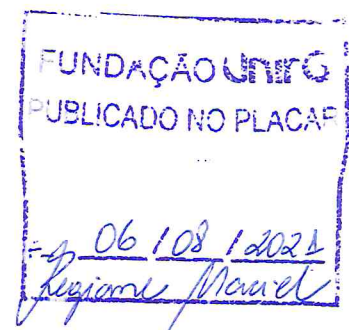 FUNDAÇÃO UnirG
PUBLICADO NO PLACAR
06 / 08 / 2021
Regiane Maciel